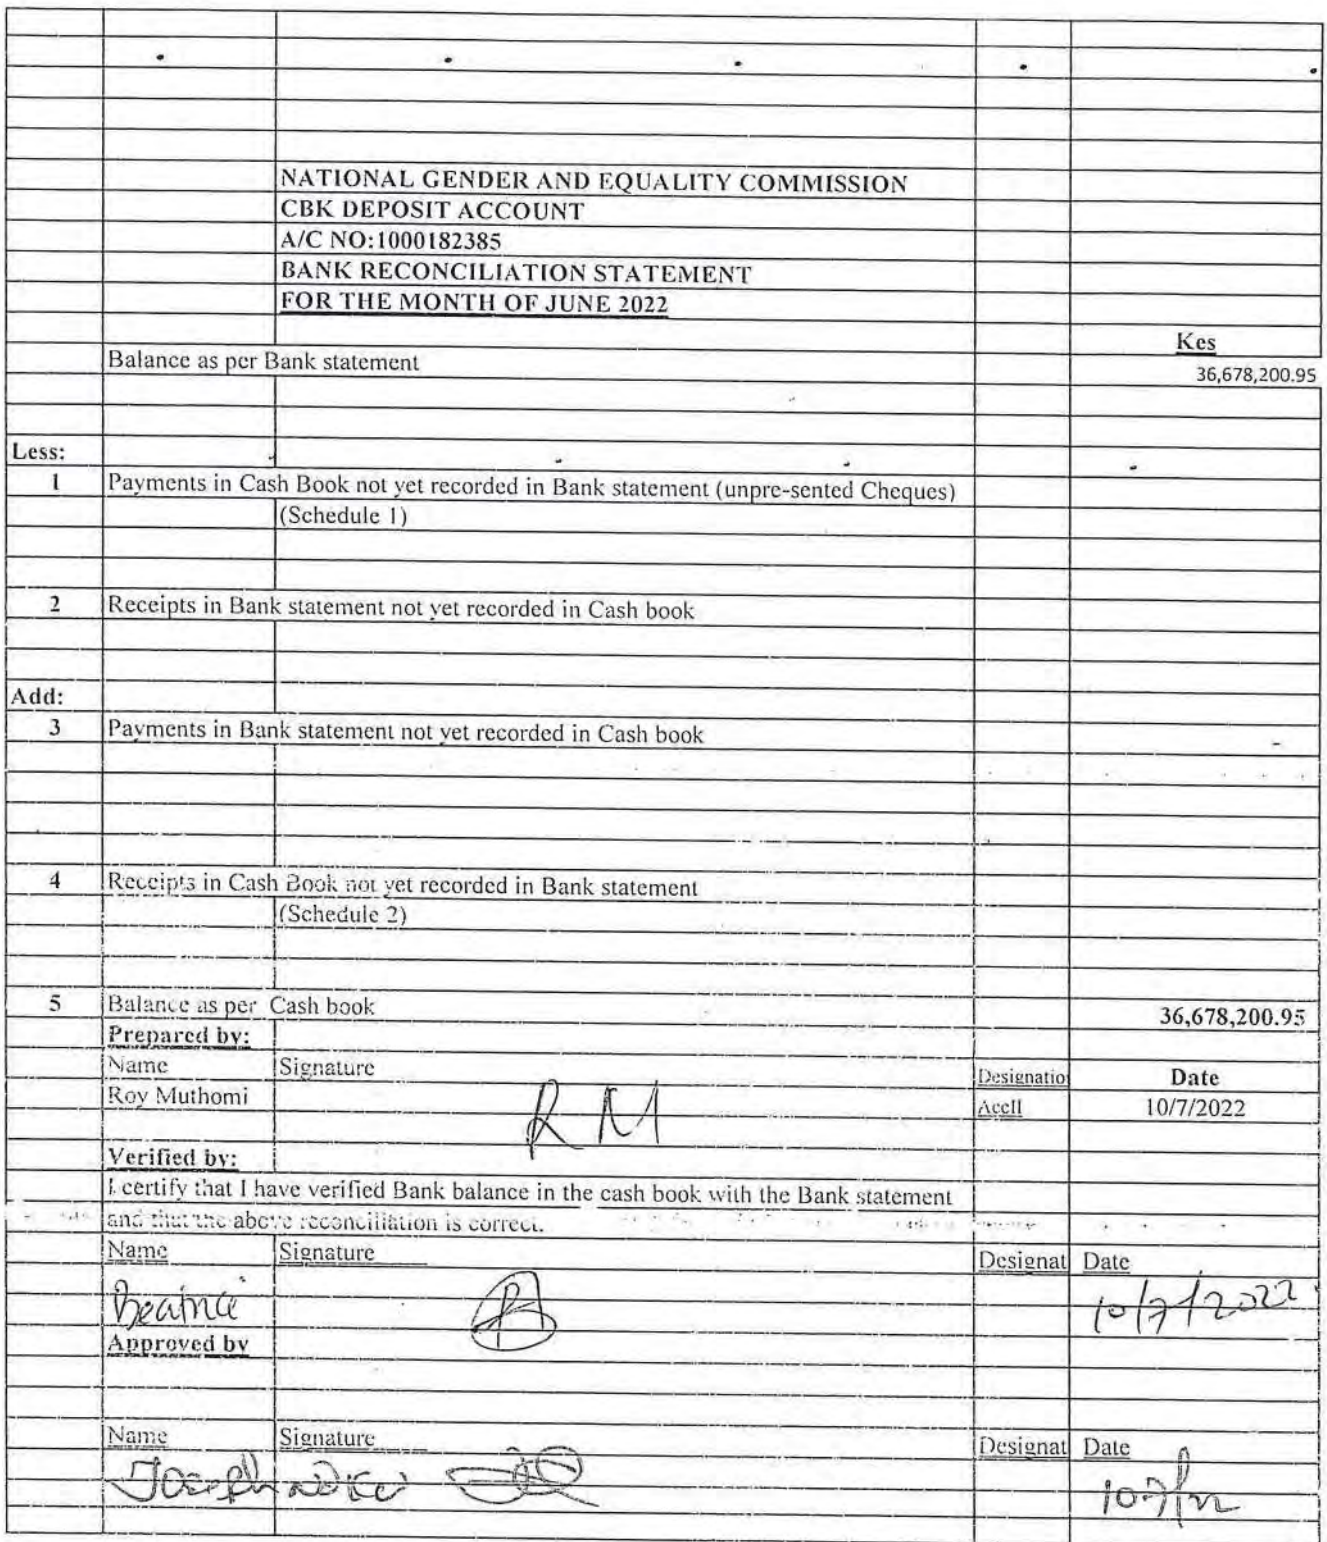 NATIONAL GENDER AND EQUALITY COMMISSION
CBK DEPOSIT ACCOUNT
A/C NO:1000182385
BANK RECONCILIATION STATEMENT
FOR THE MONTH OF JUNE 2022
Kes
Balance as per Bank statement 36,678,200.95
Less:
1 Payments in Cash Book not yet recorded in Bank statement (unpre-sented Cheques) -
(Schedule 1)
2 Receipts in Bank statement not yet recorded in Cash book
Add:
3 Payments in Bank statement not yet recorded in Cash book -
4 Receipts in Cash Book not yet recorded in Bank statement
(Schedule 2)
5 Balance as per Cash book 36,678,200.95
Prepared by:
Name Signature Designatio Date
Roy Muthomi R M AccII 10/7/2022
Verified by:
I certify that I have verified Bank balance in the cash book with the Bank statement
and that the above reconciliation is correct.
Name Signature Designat Date
Beatrice 10/7/2022
Approved by
Name Signature Designat Date
Joseph